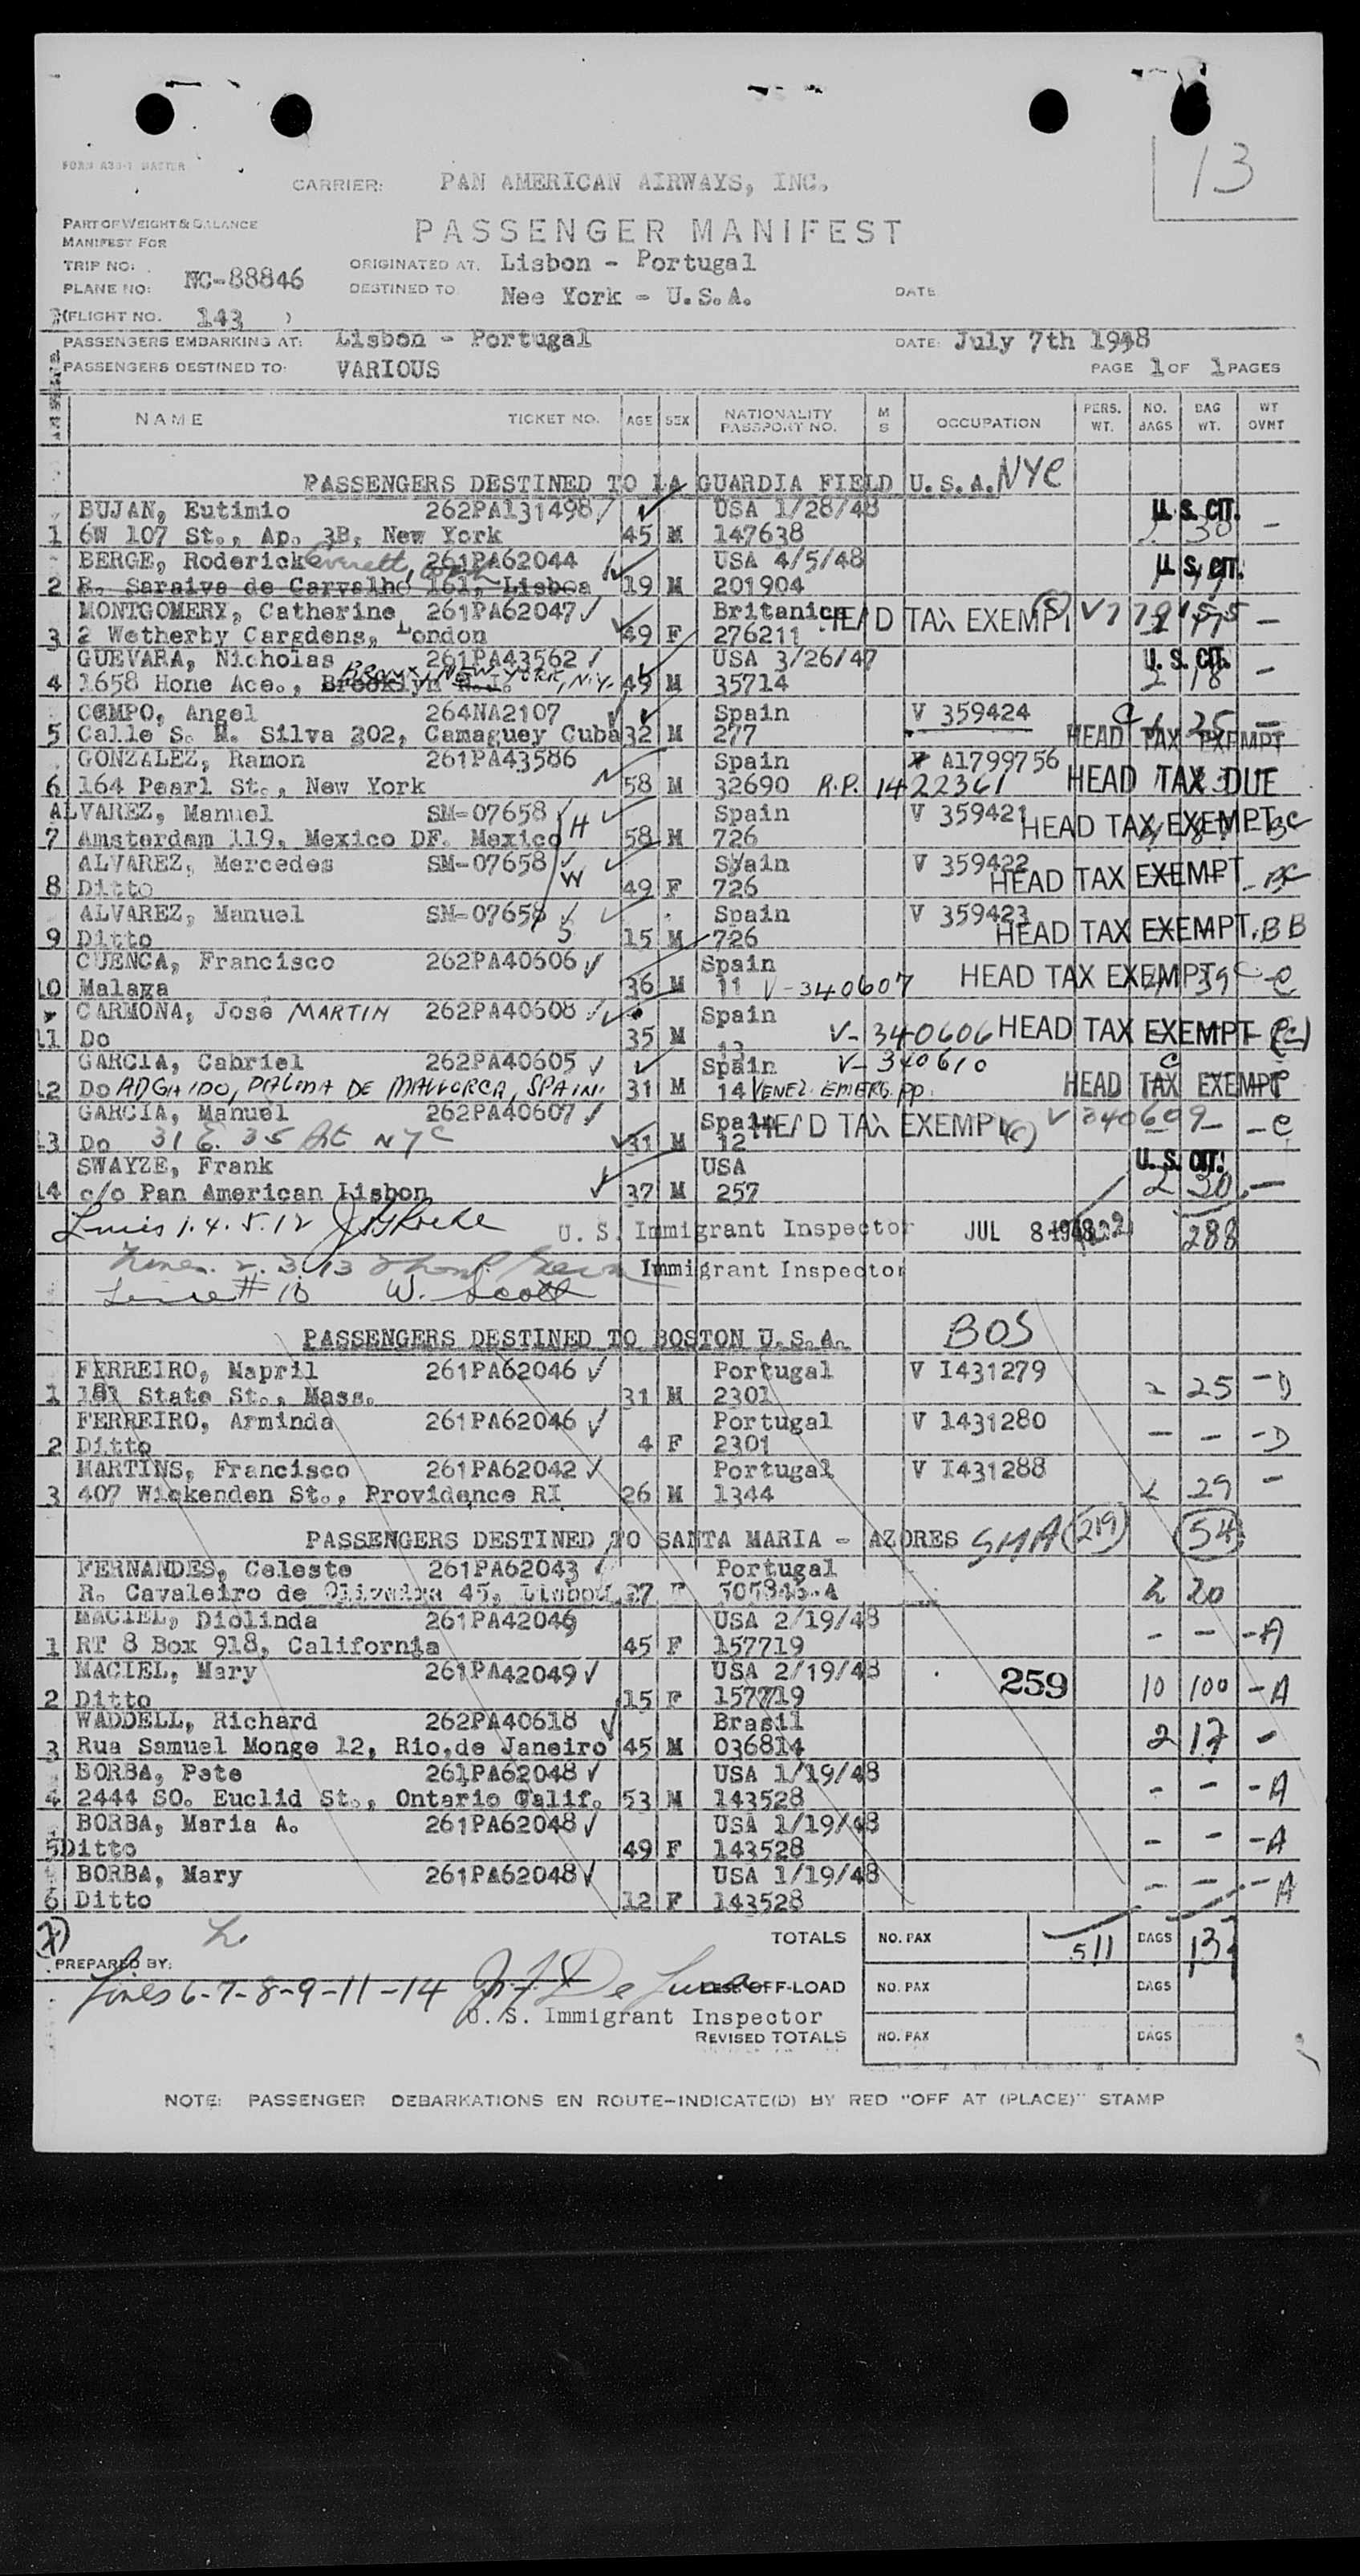 FORM A30-1 MASTER
CARRIER: PAN AMERICAN AIRWAYS, INC.
13
PART OF WEIGHT & BALANCE
MANIFEST FOR
PASSENGER MANIFEST
TRIP NO:
ORIGINATED AT. Lisbon - Portugal
PLANE NO: NC-88846
DESTINED TO Nee York - U.S.A. DATE
(FLIGHT NO. 143 )
PASSENGERS EMBARKING AT: Lisbon - Portugal DATE: July 7th 1948
PASSENGERS DESTINED TO: VARIOUS PAGE 1 OF 1 PAGES
NAME TICKET NO. AGE SEX NATIONALITY PASSPORT NO. M S OCCUPATION PERS. WT. NO. BAGS BAG WT. WT OVMT
PASSENGERS DESTINED TO LA GUARDIA FIELD U.S.A. NYC
BUJAN, Eutimio 262PA131498 USA 1/28/48 U.S. CIT.
1 6W 107 St., Ap. 3B, New York 45 M 147638 30 -
BERGE, Roderick Everett 261PA62044 USA 4/5/48 U.S. CIT.
2 R. Saraiva de Carvalho 161, Lisboa 19 M 201904
MONTGOMERY, Catherine 261PA62047 Britanica HEAD TAX EXEMPT
3 2 Wetherby Cargdens, London 49 F 276211 -
GUEVARA, Nicholas 261PA43562 USA 3/26/47 U.S. CIT.
4 1658 Hone Ace., Brooklyn N.J. BRONX, NEW YORK, N.Y. 49 M 35714 2 18 -
COMPO, Angel 264NA2107 Spain V 359424 C 25 -
5 Calle S. M. Silva 202, Camaguey Cuba 32 M 277 HEAD TAX EXEMPT
GONZALEZ, Ramon 261PA43586 Spain V A1799756
6 164 Pearl St., New York 58 M 32690 R.P. 1422361 HEAD TAX DUE
ALVAREZ, Manuel SM-07658 H Spain V 359421 HEAD TAX EXEMPT
7 Amsterdam 119, Mexico DF. Mexico 58 M 726
ALVAREZ, Mercedes SM-07658 W Spain V 359422 HEAD TAX EXEMPT
8 Ditto 49 F 726
ALVAREZ, Manuel SM-07658 S Spain V 359423 HEAD TAX EXEMPT. BB
9 Ditto 15 M 726
CUENCA, Francisco 262PA40606 Spain HEAD TAX EXEMPT C
10 Malaga 36 M 11 V-340607 39 - C
CARMONA, José MARTIN 262PA40608 Spain V-340606 HEAD TAX EXEMPT (C)
11 Do 35 M 13
GARCIA, Cabriel 262PA40605 Spain V-340610 C
12 Do ADGAIDO, PALMA DE MALLORCA, SPAIN. 31 M 14 VENEZ. EMERG. PP. HEAD TAX EXEMPT
GARCIA, Manuel 262PA40607 Spain HEAD TAX EXEMPT (C) V 340609 - C
13 Do 31 E. 35 St NYC 31 M 12
SWAYZE, Frank USA U.S. CIT.
14 c/o Pan American Lisbon 37 M 257 2 30 -
Lines 1.4.5.12 U. S. Immigrant Inspector JUL 8 1948 288
Lines. 2. 3. 13 Immigrant Inspector
Line # 10 W. Scott
PASSENGERS DESTINED TO BOSTON U.S.A. BOS
FERREIRO, Mapril 261PA62046 Portugal V I431279
1 181 State St., Mass. 31 M 2301 2 25 - D
FERREIRO, Arminda 261PA62046 Portugal V 1431280
2 Ditto 4 F 2301 - - - D
MARTINS, Francisco 261PA62042 Portugal V I431288
3 407 Wickenden St., Providence RI 26 M 1344 2 29 -
PASSENGERS DESTINED TO SANTA MARIA - AZORES SMA 219 54
FERNANDES, Celeste 261PA62043 Portugal
R. Cavaleiro de Oliveira 45, Lisbon 27 F 2 20
MACIEL, Diolinda 261PA42049 USA 2/19/48
1 RT 8 Box 918, California 45 F 157719 - - - A
MACIEL, Mary 261PA42049 USA 2/19/48 259
2 Ditto 15 F 157719 10 100 - A
WADDELL, Richard 262PA40618 Brasil
3 Rua Samuel Monge 12, Rio, de Janeiro 45 M 036814 2 17 -
BORBA, Pete 261PA62048 USA 1/19/48
4 2444 SO. Euclid St., Ontario Calif. 53 M 143528 - - - A
BORBA, Maria A. 261PA62048 USA 1/19/48
5 Ditto 49 F 143528 - - - A
BORBA, Mary 261PA62048 USA 1/19/48
6 Ditto 12 F 143528 - - - A
TOTALS NO. PAX 511 BAGS 137
PREPARED BY:
Lines 6-7-8-9-11-14 LESS OFF-LOAD NO. PAX BAGS
U. S. Immigrant Inspector
REVISED TOTALS NO. PAX BAGS
NOTE: PASSENGER DEBARKATIONS EN ROUTE-INDICATE(D) BY RED "OFF AT (PLACE)" STAMP